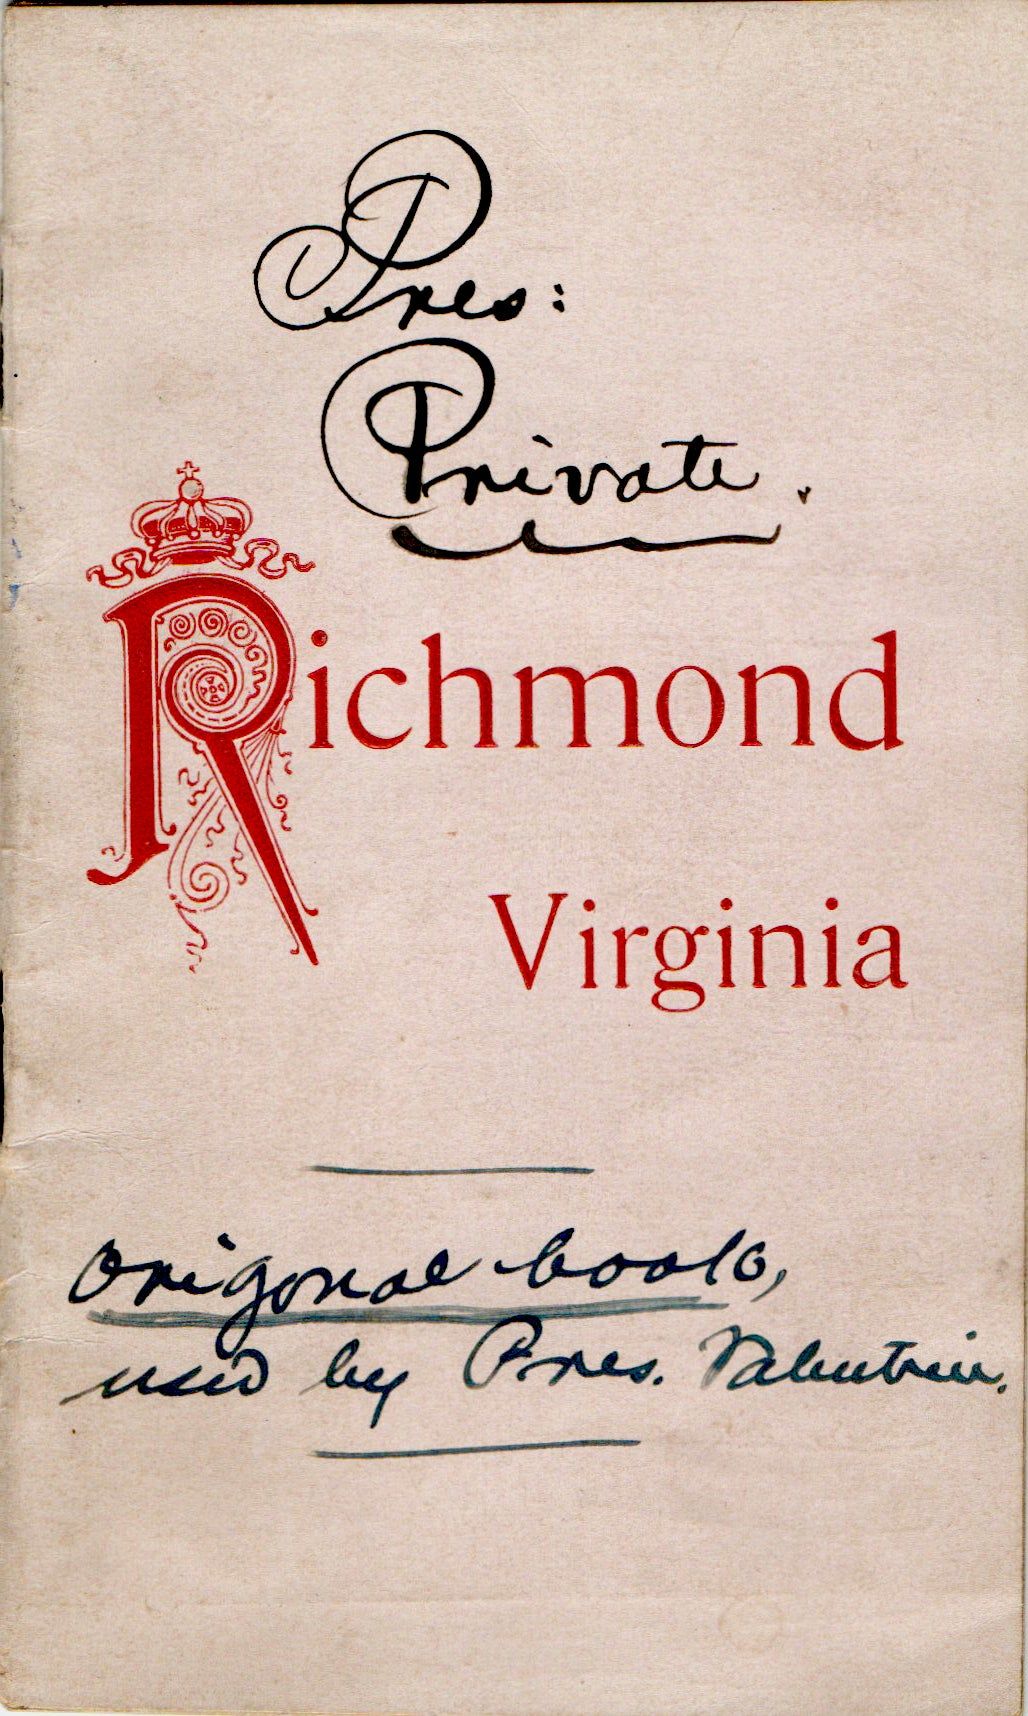 Pres:
Private.
Richmond
Virginia
Origonal book,
used by Pres. Valentine.